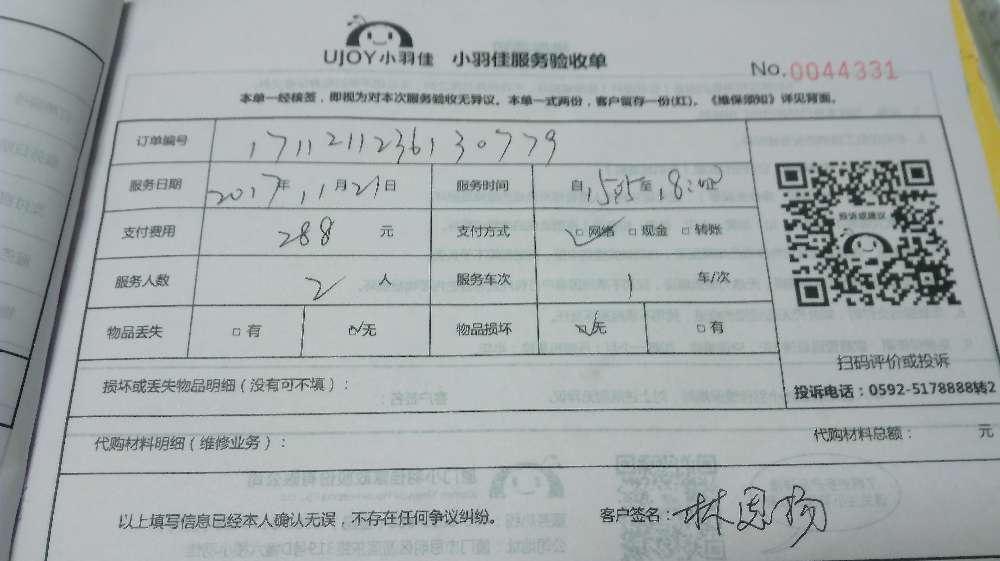 UJOY小羽佳 小羽佳服务验收单
No.0044331
本单一经核签，即视为对本次服务验收无异议。本单一式两份，客户留存一份(红)。《维保须知》详见背面。
订单编号 17112112361 30779
服务日期 2017年 11月21日 服务时间 自 至
投诉或建议
支付费用 288 元 支付方式 网络 现金 转账
服务人数 2 人 服务车次 1 车/次
物品丢失 有 无 物品损坏 无 有
扫码评价或投诉
损坏或丢失物品明细（没有可不填）：
投诉电话：0592-5178888转2
代购材料明细（维修业务）： 代购材料总额： 元
以上填写信息已经本人确认无误，不存在任何争议纠纷。 客户签名：林恩杨